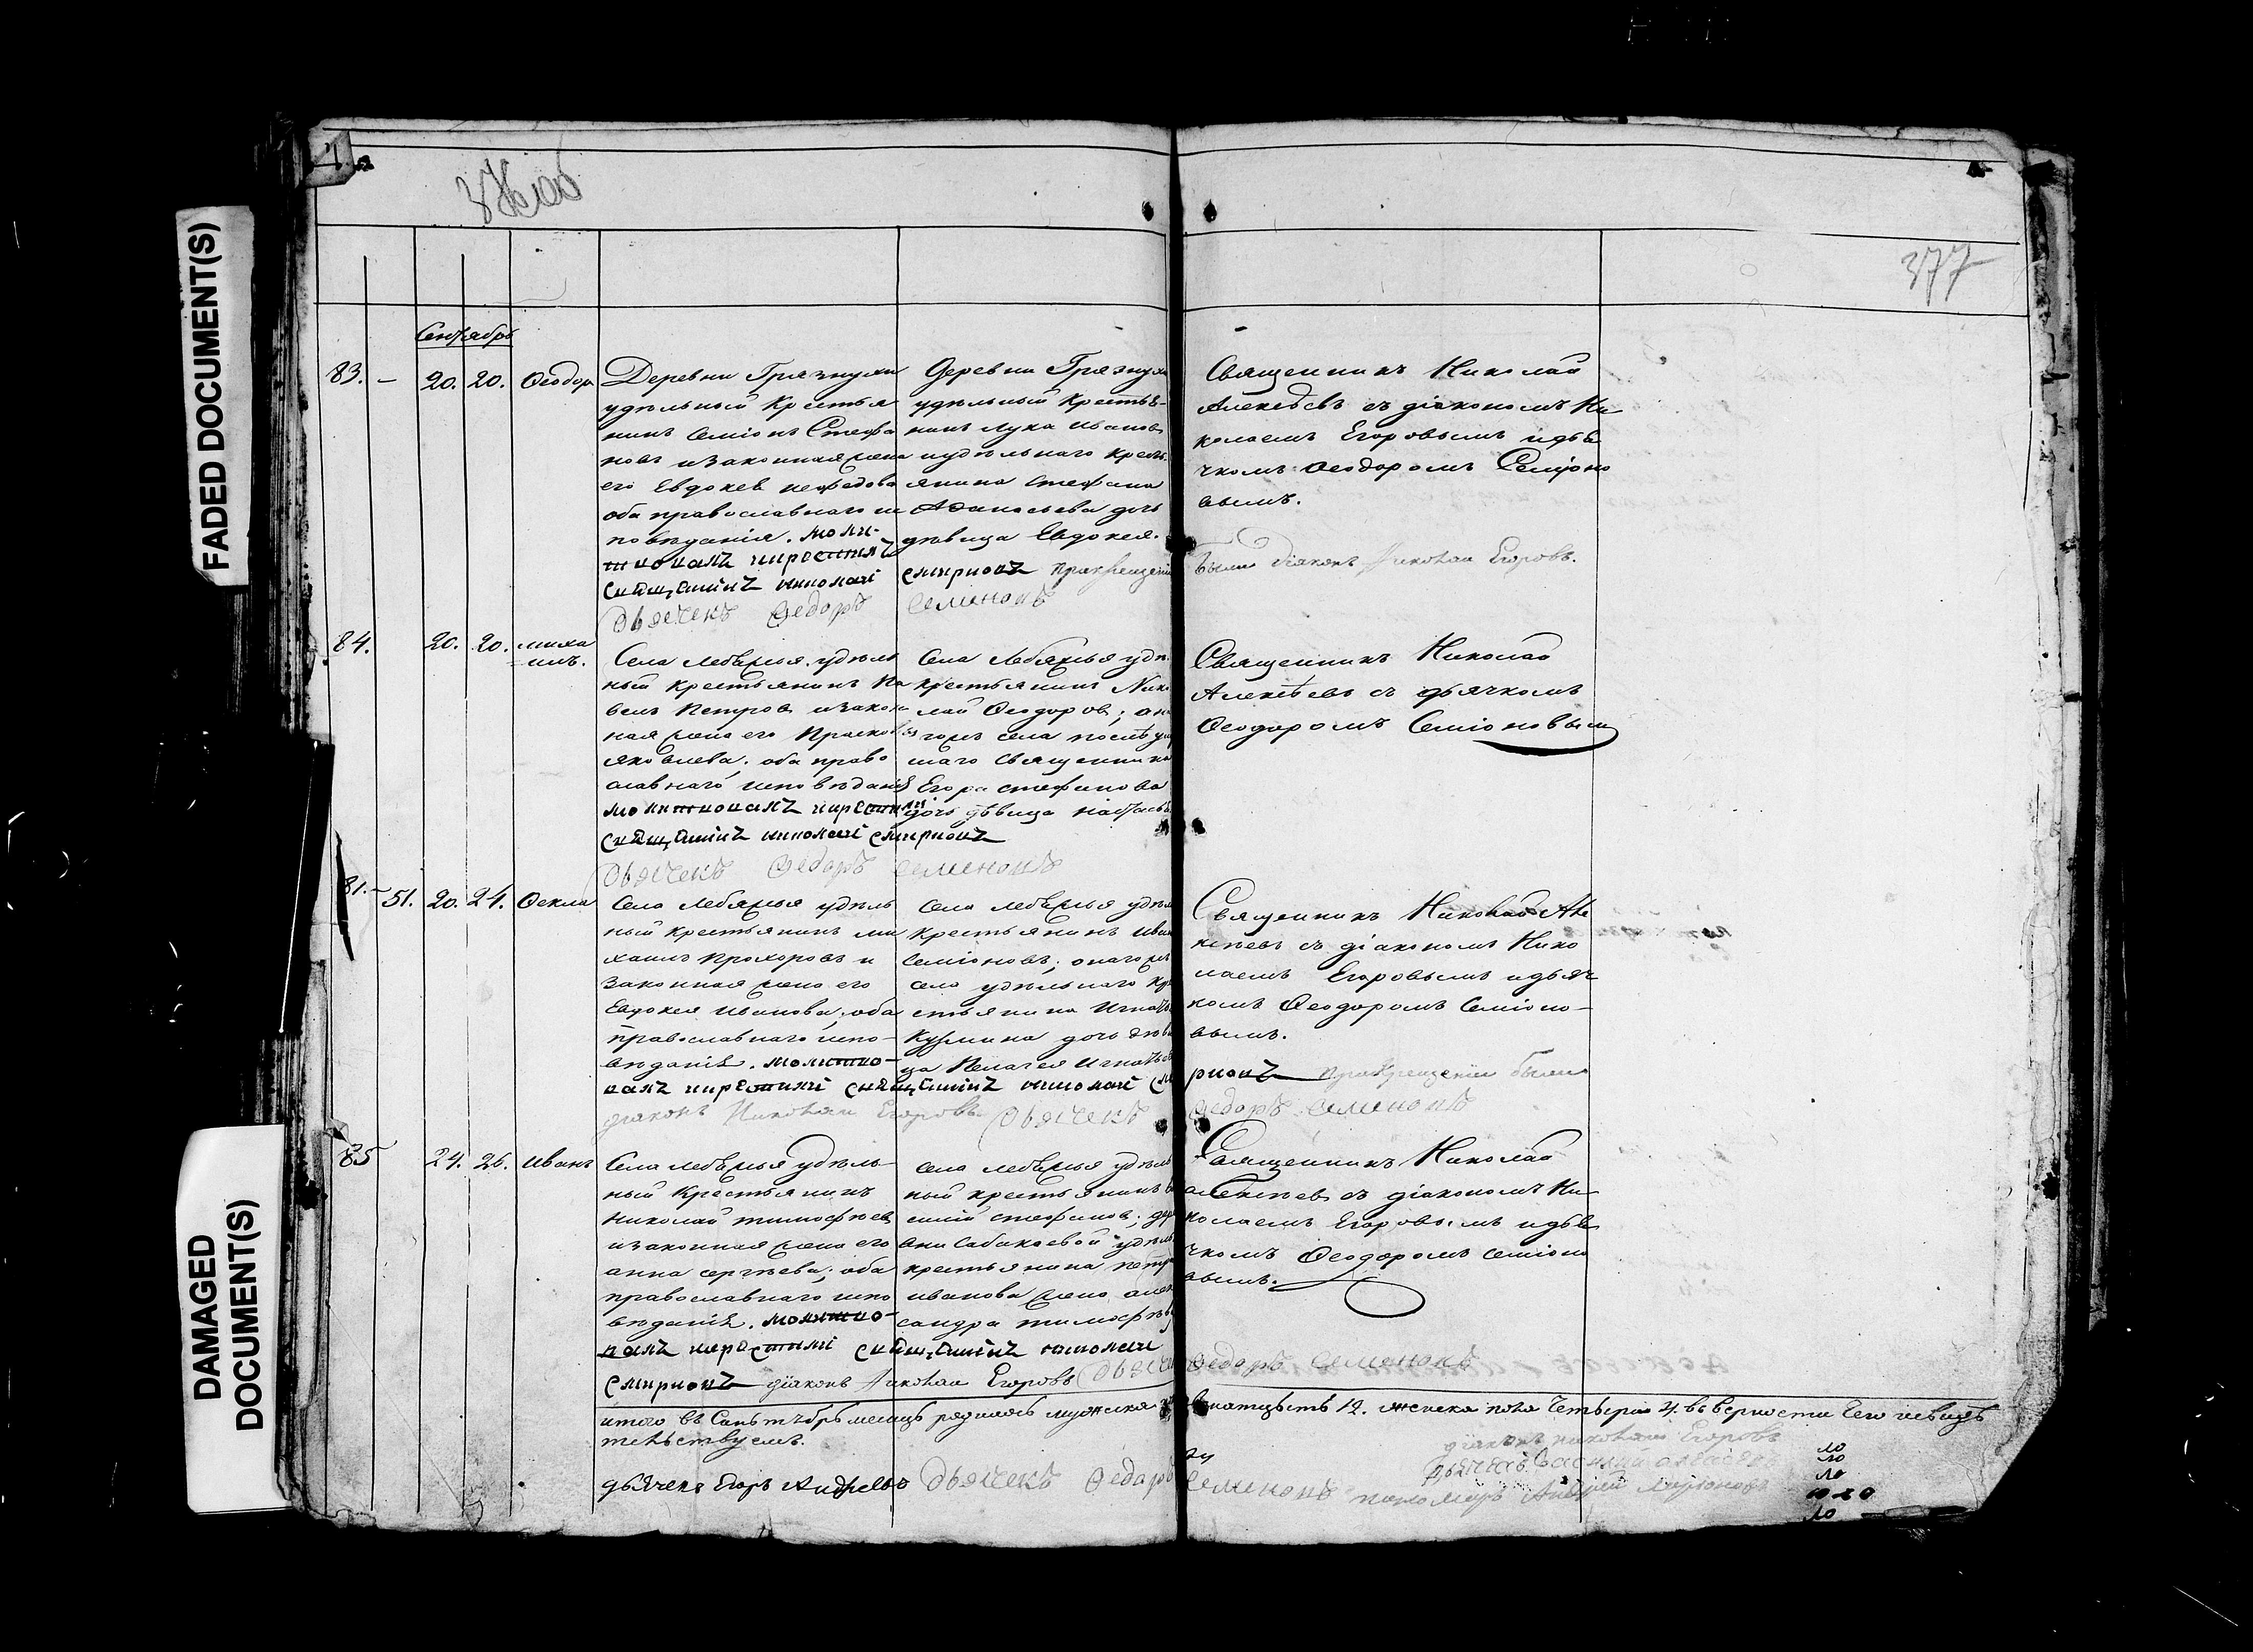 FADED DOCUMENT(S)
DAMAGED
DOCUMENT(S)
376 об
377
Сентябрь
83. – 20. 20. Ѳеодор
Деревни Грязнухи
удѣльный Крестья
нинъ Семіонъ Стефа
новъ и законная жена
его Евдокея Нефедова
оба православнаго ис
повѣданія. молит
вовалъ икрестилъ
Священникъ николаі
Деревни Грязнухи
удѣльный Крестья-
нинъ Лука Иванов
и удѣльнаго Крест
янина Стефана
Афанасьева дочь
дѣвица Евдокея.
смирновъ прикрещении
Дьячекъ Ѳедоръ Семеновъ
Священникъ Николай
Алексѣевъ съ діакономъ Ни
колаемъ Егоровымъ и дья
чкомъ Ѳеодоромъ Семіоно
вымъ.
были діаконъ Николаи Егоровъ.
84. 20. 20. миха
илъ.
Села Лебяжья удѣль
ный Крестьянинъ Па
велъ Петров и закон
ная жена его Прасковья
Яковлева; оба право
славнаго исповѣданія
молитвовалъ икрестилъ
Священникъ николаі смирновъ
Дьячекъ Ѳедоръ Семеновъ
Села Лебяжья удѣ
крестьянинъ Нико
лай Ѳеодоров;
гожъ села послѣ
шаго Священника
Егора Стефанова
дочь дѣвица
Священникъ Николай
Алексѣевъ съ дьячкомъ
Ѳеодоромъ Семіоновым
81. – 51. 20. 24. Ѳекла
Села Лебяжья удѣль
ный крестьянинъ Ми
хаилъ Прохоровъ и
законная жена его
Евдокея Иванова; оба
православнаго испо-
вѣданія. молитво-
валъ икрестилъ священникъ николаі см
діаконъ Николаи Егоровъ Дьячекъ
Села Лебяжья удѣл
крестьянинъ Иван
Семіоновъ; онагожъ
села удѣльнаго кр
естьянина Игнатья
Кузмина дочь дѣви
ца Пелагея Игнатьев
Священникъ Николай Але
ксѣевъ съ діакономъ Нико
лаемъ Егоровымъ и дьяч
комъ Ѳеодоромъ Семіоно-
вымъ.
рновъ прикрещении были
Ѳедоръ Семеновъ
85 24. 26. Иванъ
Села Лебяжья удѣль-
ный Крестьянинъ
Николай Тимофѣев
и законная жена его
Анна Сергѣева; оба
православнаго испо
вѣданія. молитво-
валъ икрестилі священникъ николаі
смирновъ діаконъ Николаи Егоровъ Дьяче
Села Лебяжья удѣль
ный крестьянинъ
Стефанов; дер
вни Сабакаевой удѣль
крестьянина Петра
Иванова жена Алек
сандра Тимофѣев
Священникъ Николай
Алексѣев съ діакономъ Ни
колаемъ Егоровымъ и дья
чкомъ Ѳеодоромъ Семіоно
вымъ.
Ѳедоръ Семеновъ
итого в Сеньтябрѣ месяцъ родилось мужска 12. женска пола четыри 4. вверности чего
тельствуемъ.
діаконъ николаи Егоровъ
дьячекъ Егоръ Андреевъ Дьячекъ Ѳедоръ Семеновъ пономарь Андрей